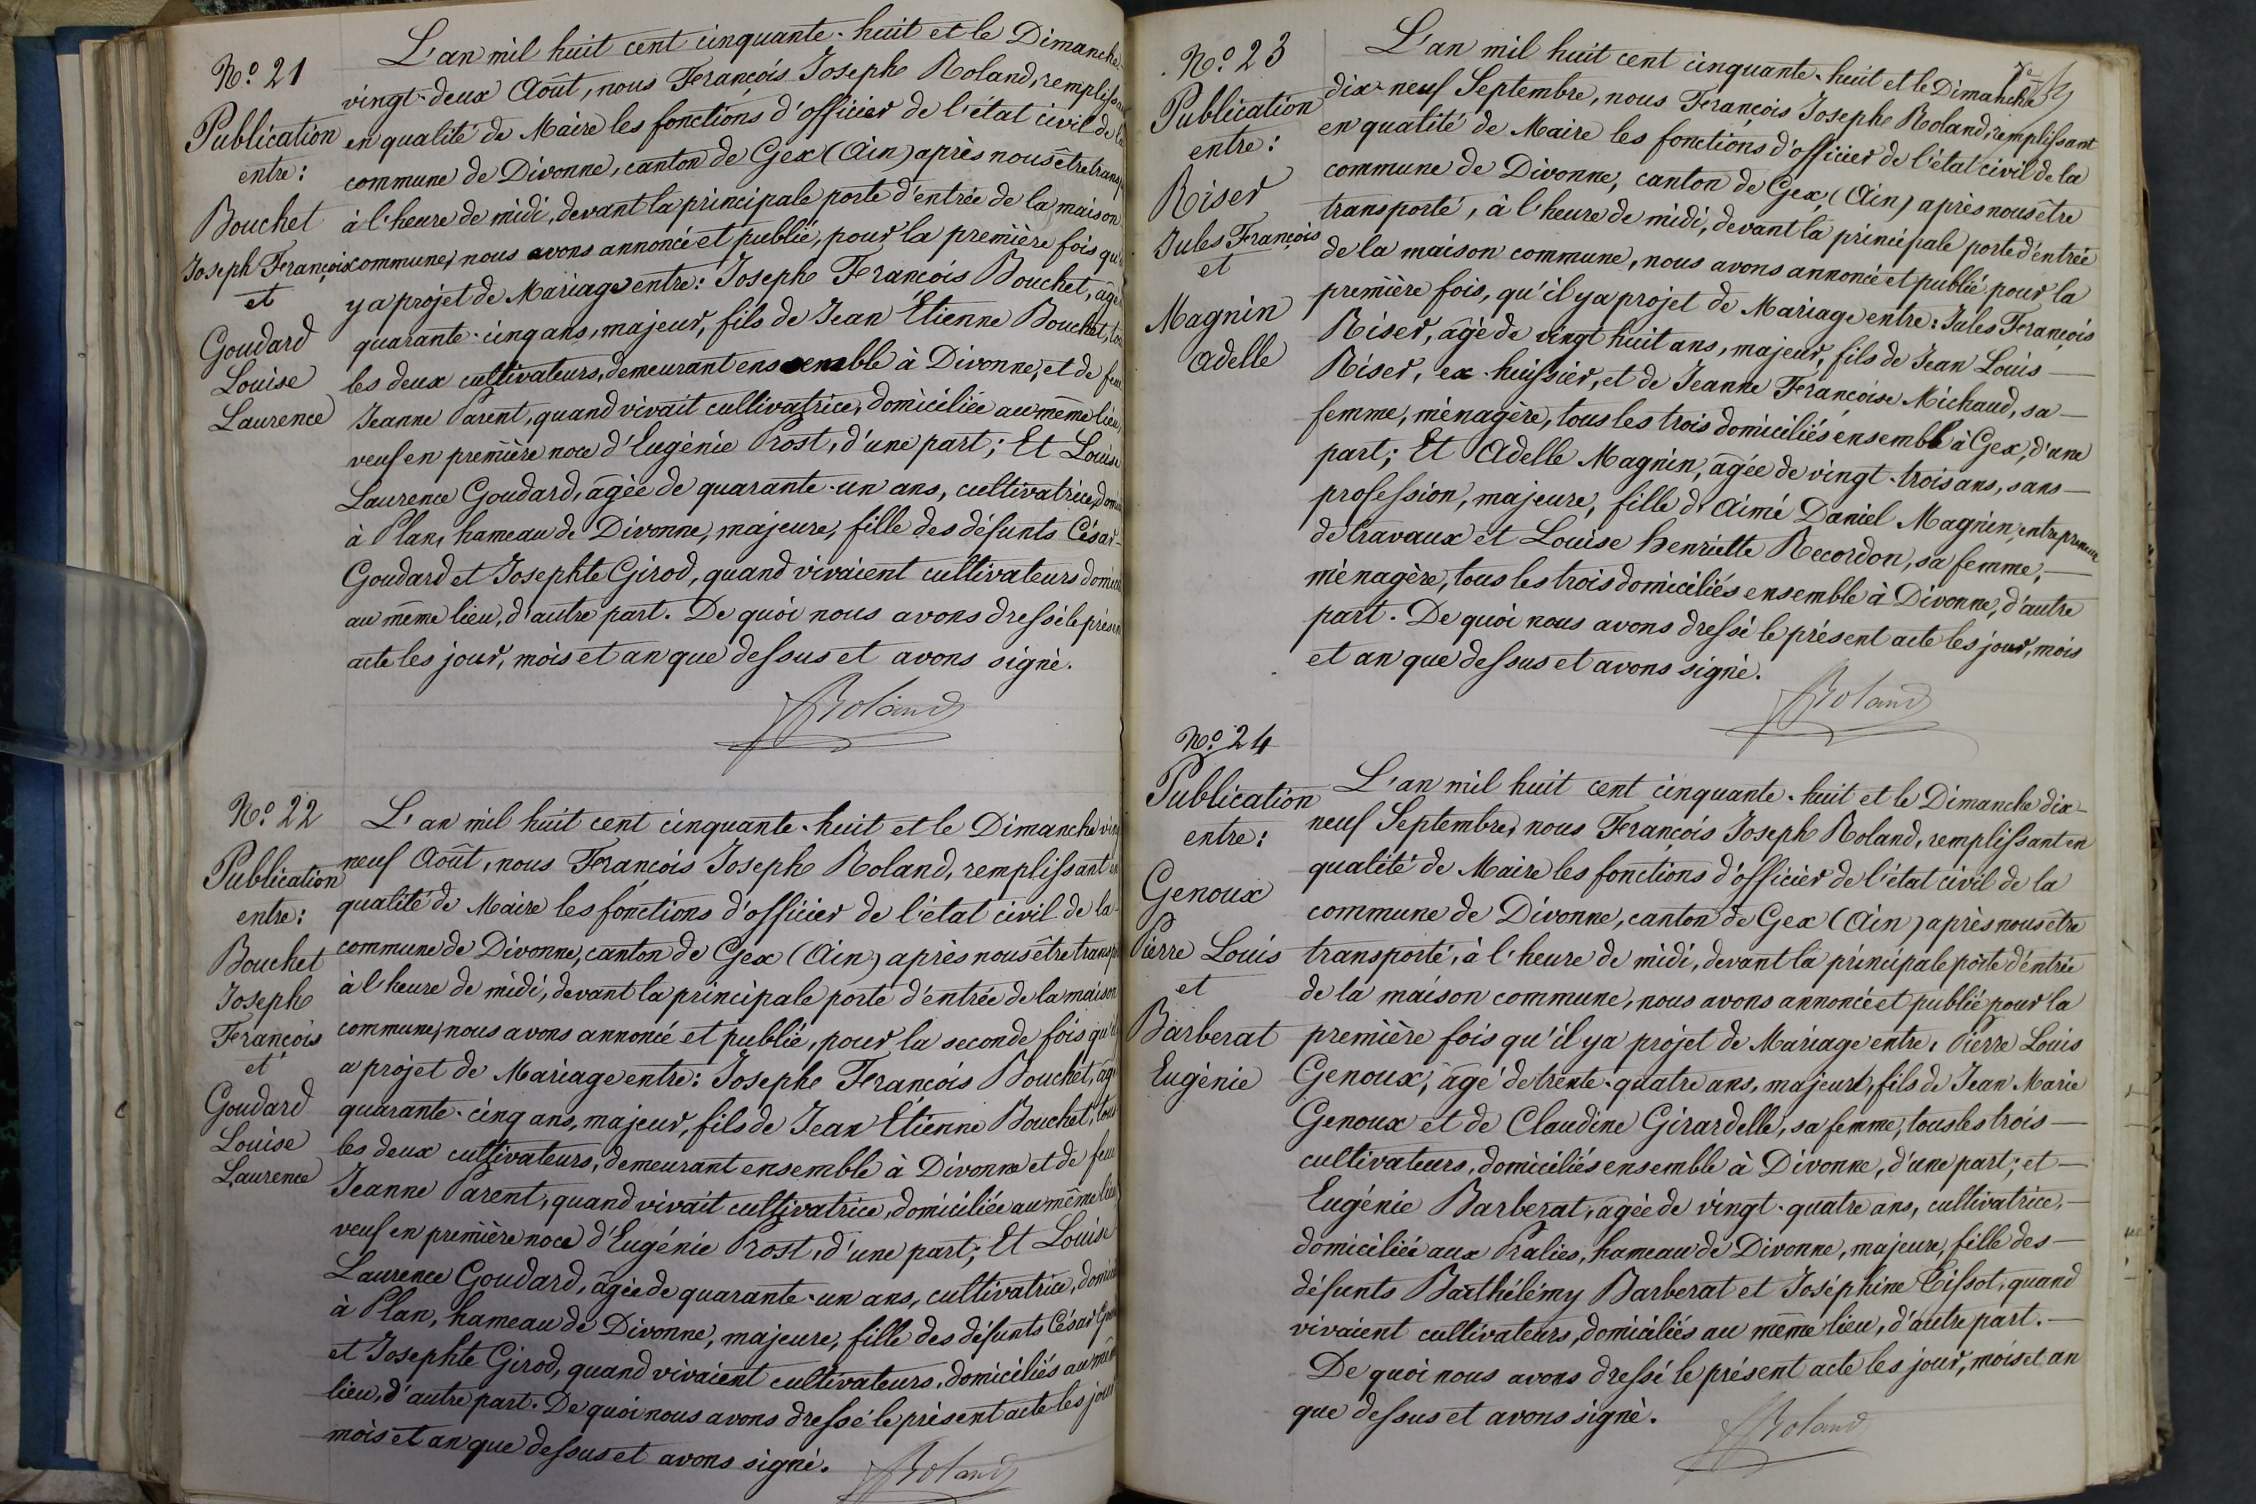 No. 21
Publication
entre:
Bouchet
Joseph François
et
Goudard
Louise
Laurence
L'an mil huit cent cinquante-huit et le Dimanche
vingt-deux Août, nous François Joseph Roland, remplissant
en qualité de Maire les fonctions d'officier de l'état civil de la
commune de Divonne, canton de Gex (Ain) après nous être transp
à l'heure de midi, devant la principale porte d'entrée de la maison
commune, nous avons annoncé et publié, pour la première fois qu'
y a projet de Mariage entre: Joseph François Bouchet, âgé
quarante-cinq ans, majeur, fils de Jean Étienne Bouchet, tous
les deux cultivateurs, demeurant ensemble à Divonne, et de feue
Jeanne Parent, quand vivait cultivatrice, domiciliée au même lieu,
veuf en première noce d'Eugénie Prost, d'une part; Et Louise
Laurence Goudard, âgée de quarante-un ans, cultivatrice, domi
à Plan, hameau de Divonne, majeure, fille des défunts César
Goudard et Josephte Girod, quand vivaient cultivateurs domici
au même lieu, d'autre part. De quoi nous avons dressé le présent
acte les jour, mois et an que dessus et avons signé.
Roland
No. 22
Publication
entre:
Bouchet
Joseph
François
et
Goudard
Louise
Laurence
L'an mil huit cent cinquante-huit et le Dimanche ving
neuf Août, nous François Joseph Roland, remplissant en
qualité de Maire les fonctions d'officier de l'état civil de la
commune de Divonne, canton de Gex (Ain) après nous être transp
à l'heure de midi, devant la principale porte d'entrée de la maison
commune, nous avons annoncé et publié, pour la seconde fois qu'il
a projet de Mariage entre: Joseph François Bouchet, âgé
quarante-cinq ans, majeur, fils de Jean Étienne Bouchet, tous
les deux cultivateurs, demeurant ensemble à Divonne et de feue
Jeanne Parent, quand vivait cultivatrice, domiciliée au même lieu
veuf en première noce d'Eugénie Prost, d'une part; Et Louise
Laurence Goudard, âgée de quarante-un ans, cultivatrice, domici
à Plan, hameau de Divonne, majeure, fille des défunts César Gou
et Josephte Girod, quand vivaient cultivateurs, domiciliés au même
lieu, d'autre part. De quoi nous avons dressé le présent acte les jour
mois et an que dessus et avons signé.
Roland
No. 23
Publication
entre:
Riser
Jules François
et
Magnin
Adelle
L'an mil huit cent cinquante-huit et le Dimanche
dix-neuf Septembre, nous François Joseph Roland, remplissant
en qualité de Maire les fonctions d'officier de l'état civil de la
commune de Divonne, canton de Gex, (Ain) après nous être
transporté, à l'heure de midi, devant la principale porte d'entrée
de la maison commune, nous avons annoncé et publié pour la
première fois, qu'il y a projet de Mariage entre: Jules François
Riser, âgé de vingt huit ans, majeur, fils de Jean Louis
Riser, ex-huissier, et de Jeanne Françoise Michaud, sa
femme, ménagère, tous les trois domiciliés ensemble à Gex, d'une
part; Et Adelle Magnin, âgée de vingt-trois ans, sans
profession, majeure, fille d'Aimé Daniel Magnin, entrepreneur
de travaux et Louise henriette Recordon, sa femme,
ménagère, tous les trois domiciliés ensemble à Divonne, d'autre
part. De quoi nous avons dressé le présent acte les jour, mois
et an que dessus et avons signé.
Roland
No. 24
Publication
entre:
Genoux
Pierre Louis
et
Barberat
Eugénie
L'an mil huit cent cinquante-huit et le Dimanche dix-
neuf Septembre, nous François Joseph Roland, remplissant en
qualité de Maire les fonctions d'officier de l'état civil de la
commune de Divonne, canton de Gex (Ain) après nous être
transporté, à l'heure de midi, devant la principale porte d'entrée
de la maison commune, nous avons annoncé et publié pour la
première fois qu'il y a projet de Mariage entre, Pierre Louis
Genoux, âgé de trente-quatre ans, majeur, fils de Jean Marie
Genoux et de Claudine Girardelle, sa femme, tous les trois
cultivateurs, domiciliés ensemble à Divonne, d'une part; et
Eugénie Barberat, âgée de vingt-quatre ans, cultivatrice,
domiciliée aux Pralies, hameau de Divonne, majeure, fille des
défunts Barthélémy Barberat et Joséphine Tissot, quand
vivaient cultivateurs, domiciliés au même lieu, d'autre part.
De quoi nous avons dressé le présent acte les jour, mois et an
que dessus et avons signé.
Roland